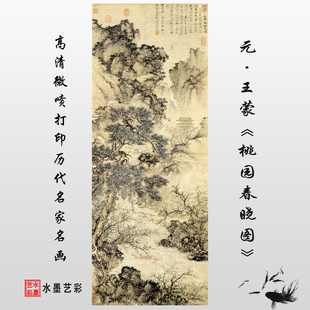 元·王蒙《桃园春晓图》
高清微喷打印历代名家名画
水墨艺彩
水墨艺彩